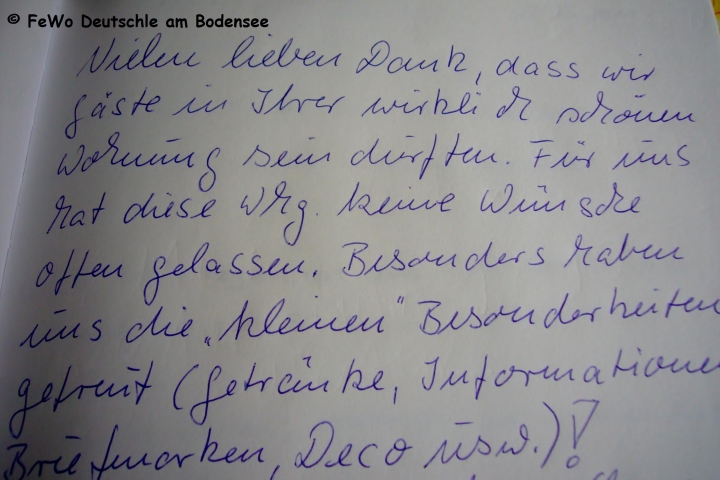 © FeWo Deutschle am Bodensee
Vielen lieben Dank, dass wir
Gäste in Ihrer wirklich schönen
Wohnung sein durften. Für uns
hat diese Whg. keine Wünsche
offen gelassen. Besonders haben
uns die „kleinen“ Besonderheiten
gefreut (Getränke, Informatione
Briefmarken, Deco usw.)!